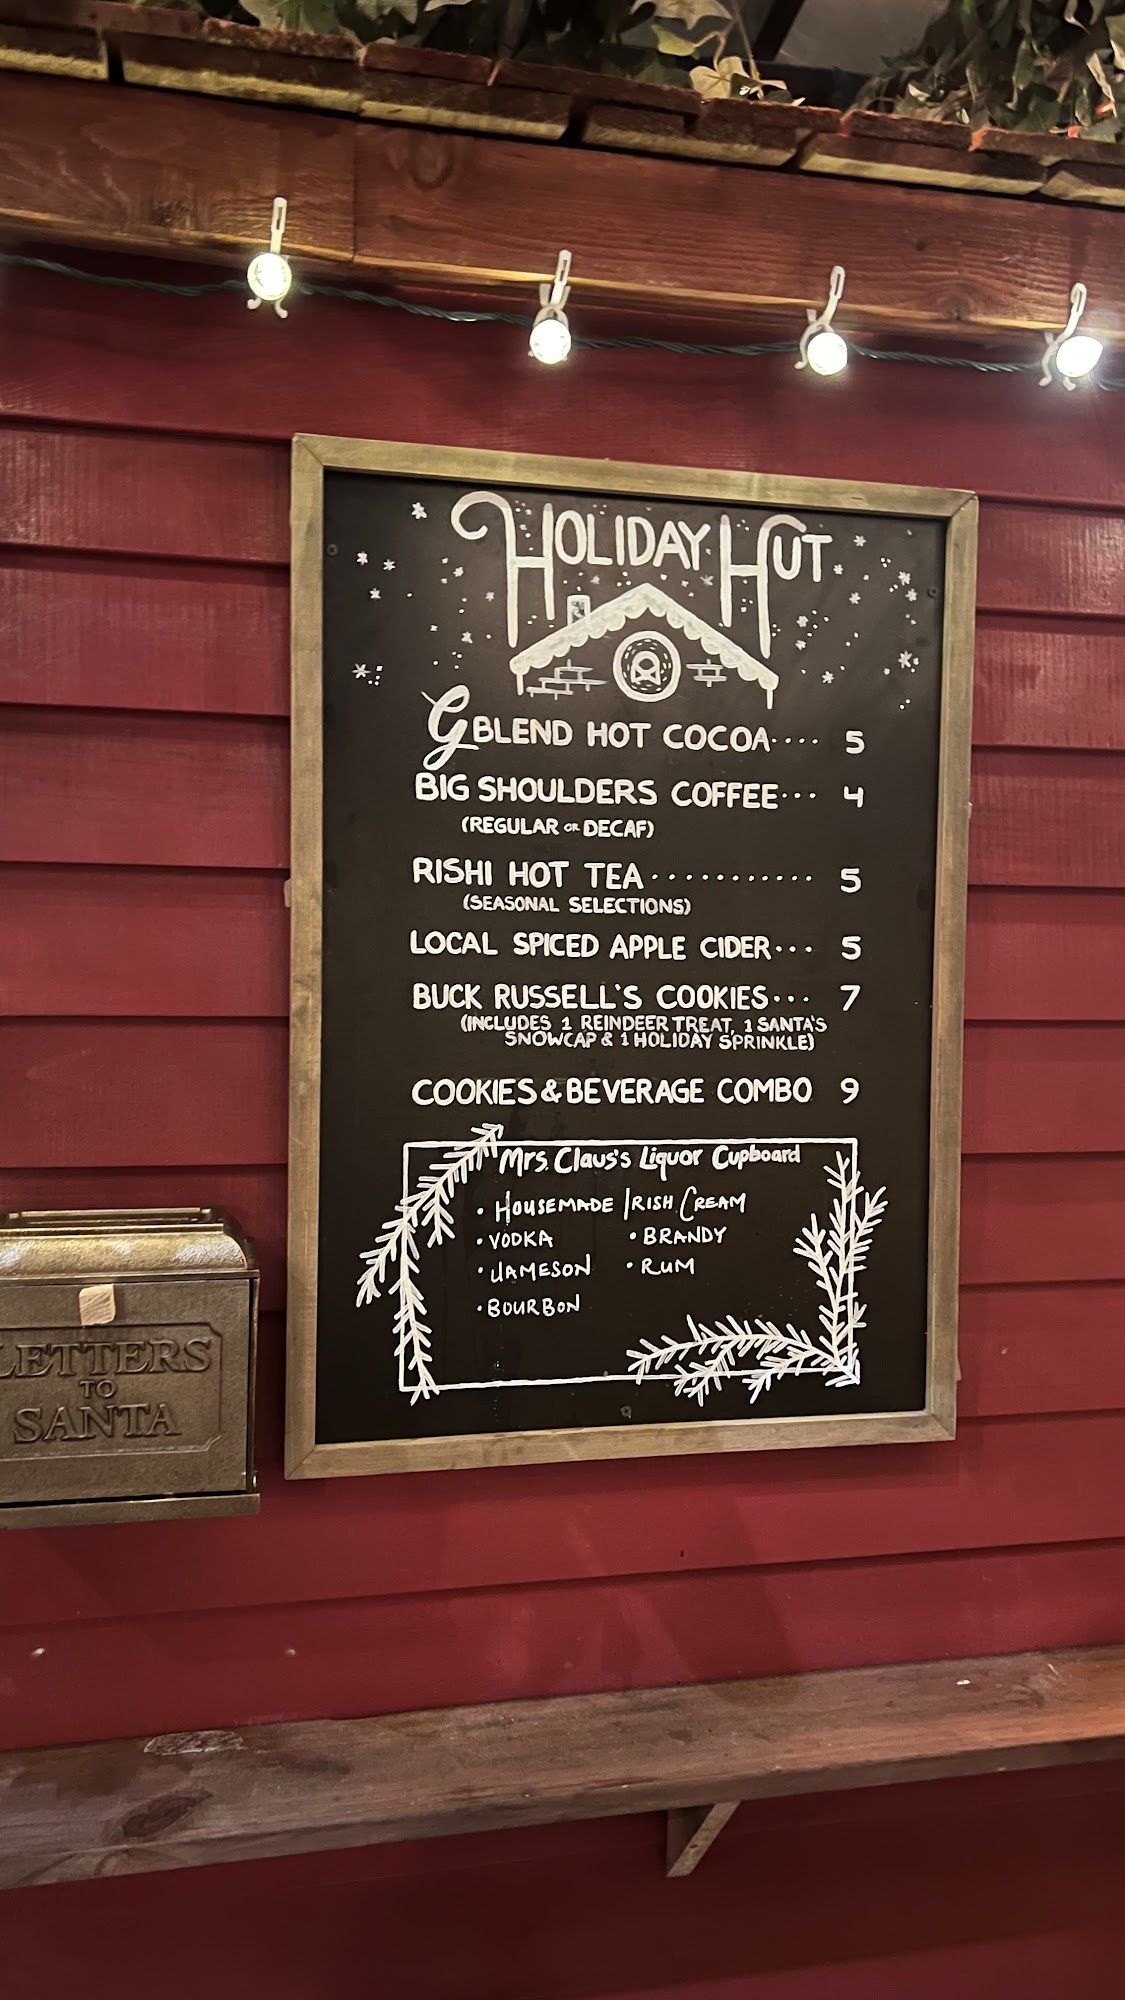 HOLIDAY HUT
G BLEND HOT COCOA.... 5
BIG SHOULDERS COFFEE... 4
(REGULAR OR DECAF)
RISHI HOT TEA............ 5
(SEASONAL SELECTIONS)
LOCAL SPICED APPLE CIDER... 5
BUCK RUSSELL'S COOKIES... 7
(INCLUDES 1 REINDEER TREAT, 1 SANTA'S
SNOWCAP & 1 HOLIDAY SPRINKLE)
COOKIES & BEVERAGE COMBO 9
Mrs. Claus's Liquor Cupboard
• HOUSEMADE IRISH CREAM
• VODKA • BRANDY
• JAMESON • RUM
• BOURBON
LETTERS
TO
SANTA